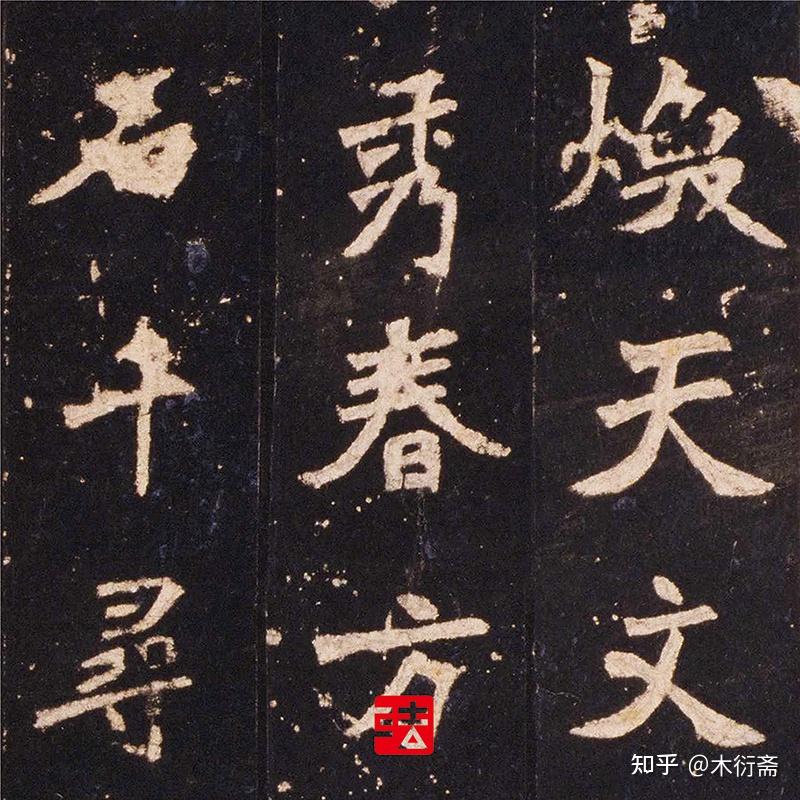 煥天文
秀春方
石千尋
知乎 @木衍斋